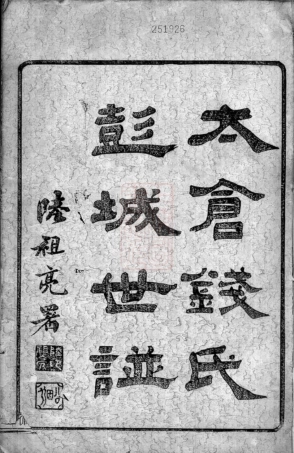 251926
太倉錢氏
彭城世譜
陸祖亮署